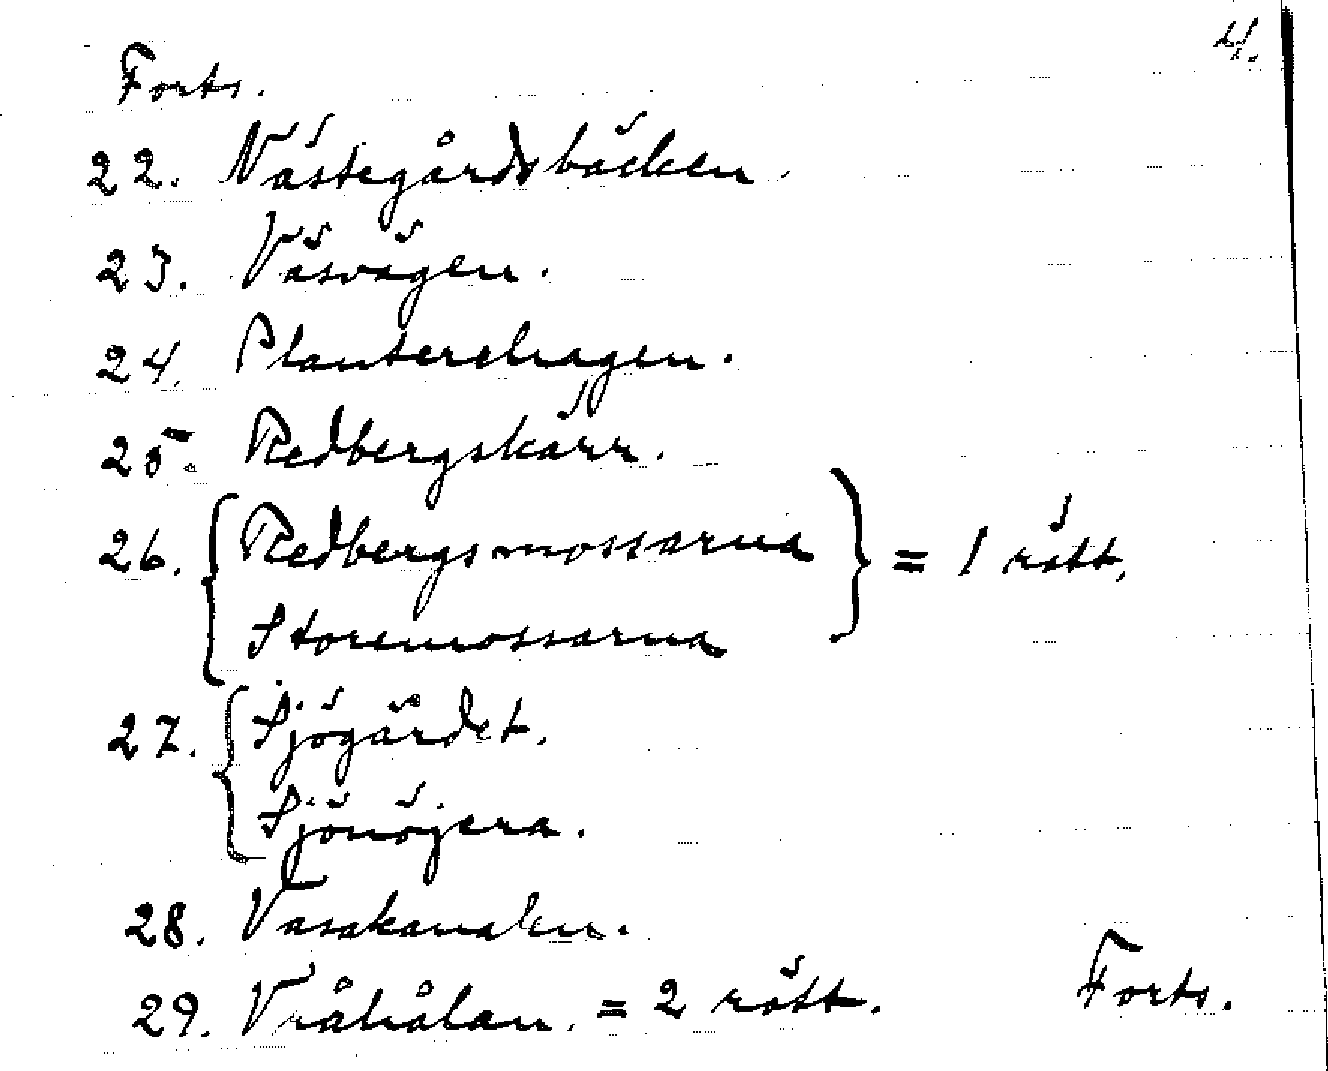 4.
Forts.
22. Västegårdsbäcken.
23. Väsvägen.
24. Planterehagen.
25. Redbergskärr.
26. { Redbergsmossarna } = 1 rätt.
Storemossarna
27. { Sjögärdet.
Sjönöjera.
28. Vasakanalen.
29. Vråhålan. = 2 rätt. Forts.